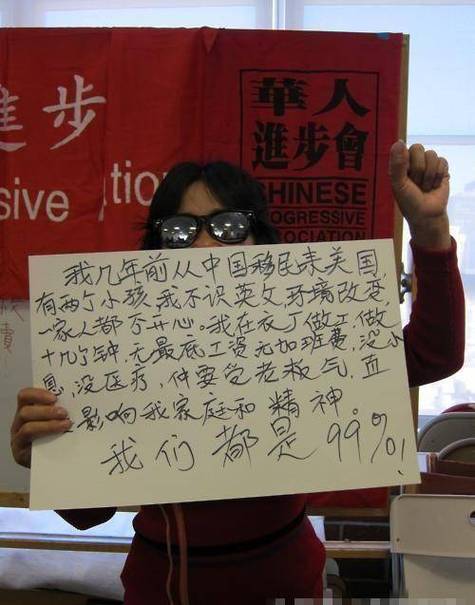 進步
sive
ation
華人
進步會
CHINESE
PROGRESSIVE
ASSOCIATION
我几年前从中国移民来美国,
有两个小孩,我不识英文,环境改变,
一家人都不开心。我在衣厂做工,做
十几个钟,无最底工资,无加班费,没小
息,没医疗,仲要受老板气,直
影响我家庭和精神。
我们都是99%!